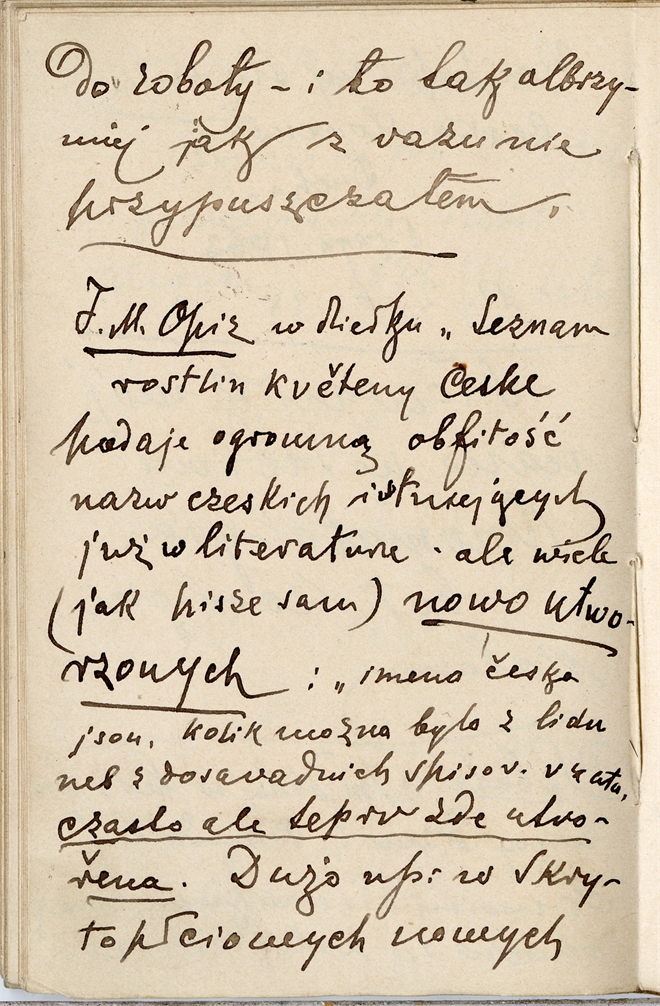 do roboty – i to tak olbrzy-
miej jak z razu nie
przypuszczałem.
J. M. Opiz w dziełku „Seznam
rostlin květeny České
podaje ogromną obfitość
nazw czeskich istniejących
już w literaturze · ale wiele
(jak pisze sam) nowo utwo-
rzonych : „imena česka
jsou, kolik možna bylo z lidu
neb z dosavadnich spisov. vzata,
często ale teprv zde utvo-
řena. Dużo np: w Skry-
topłciowych nowych